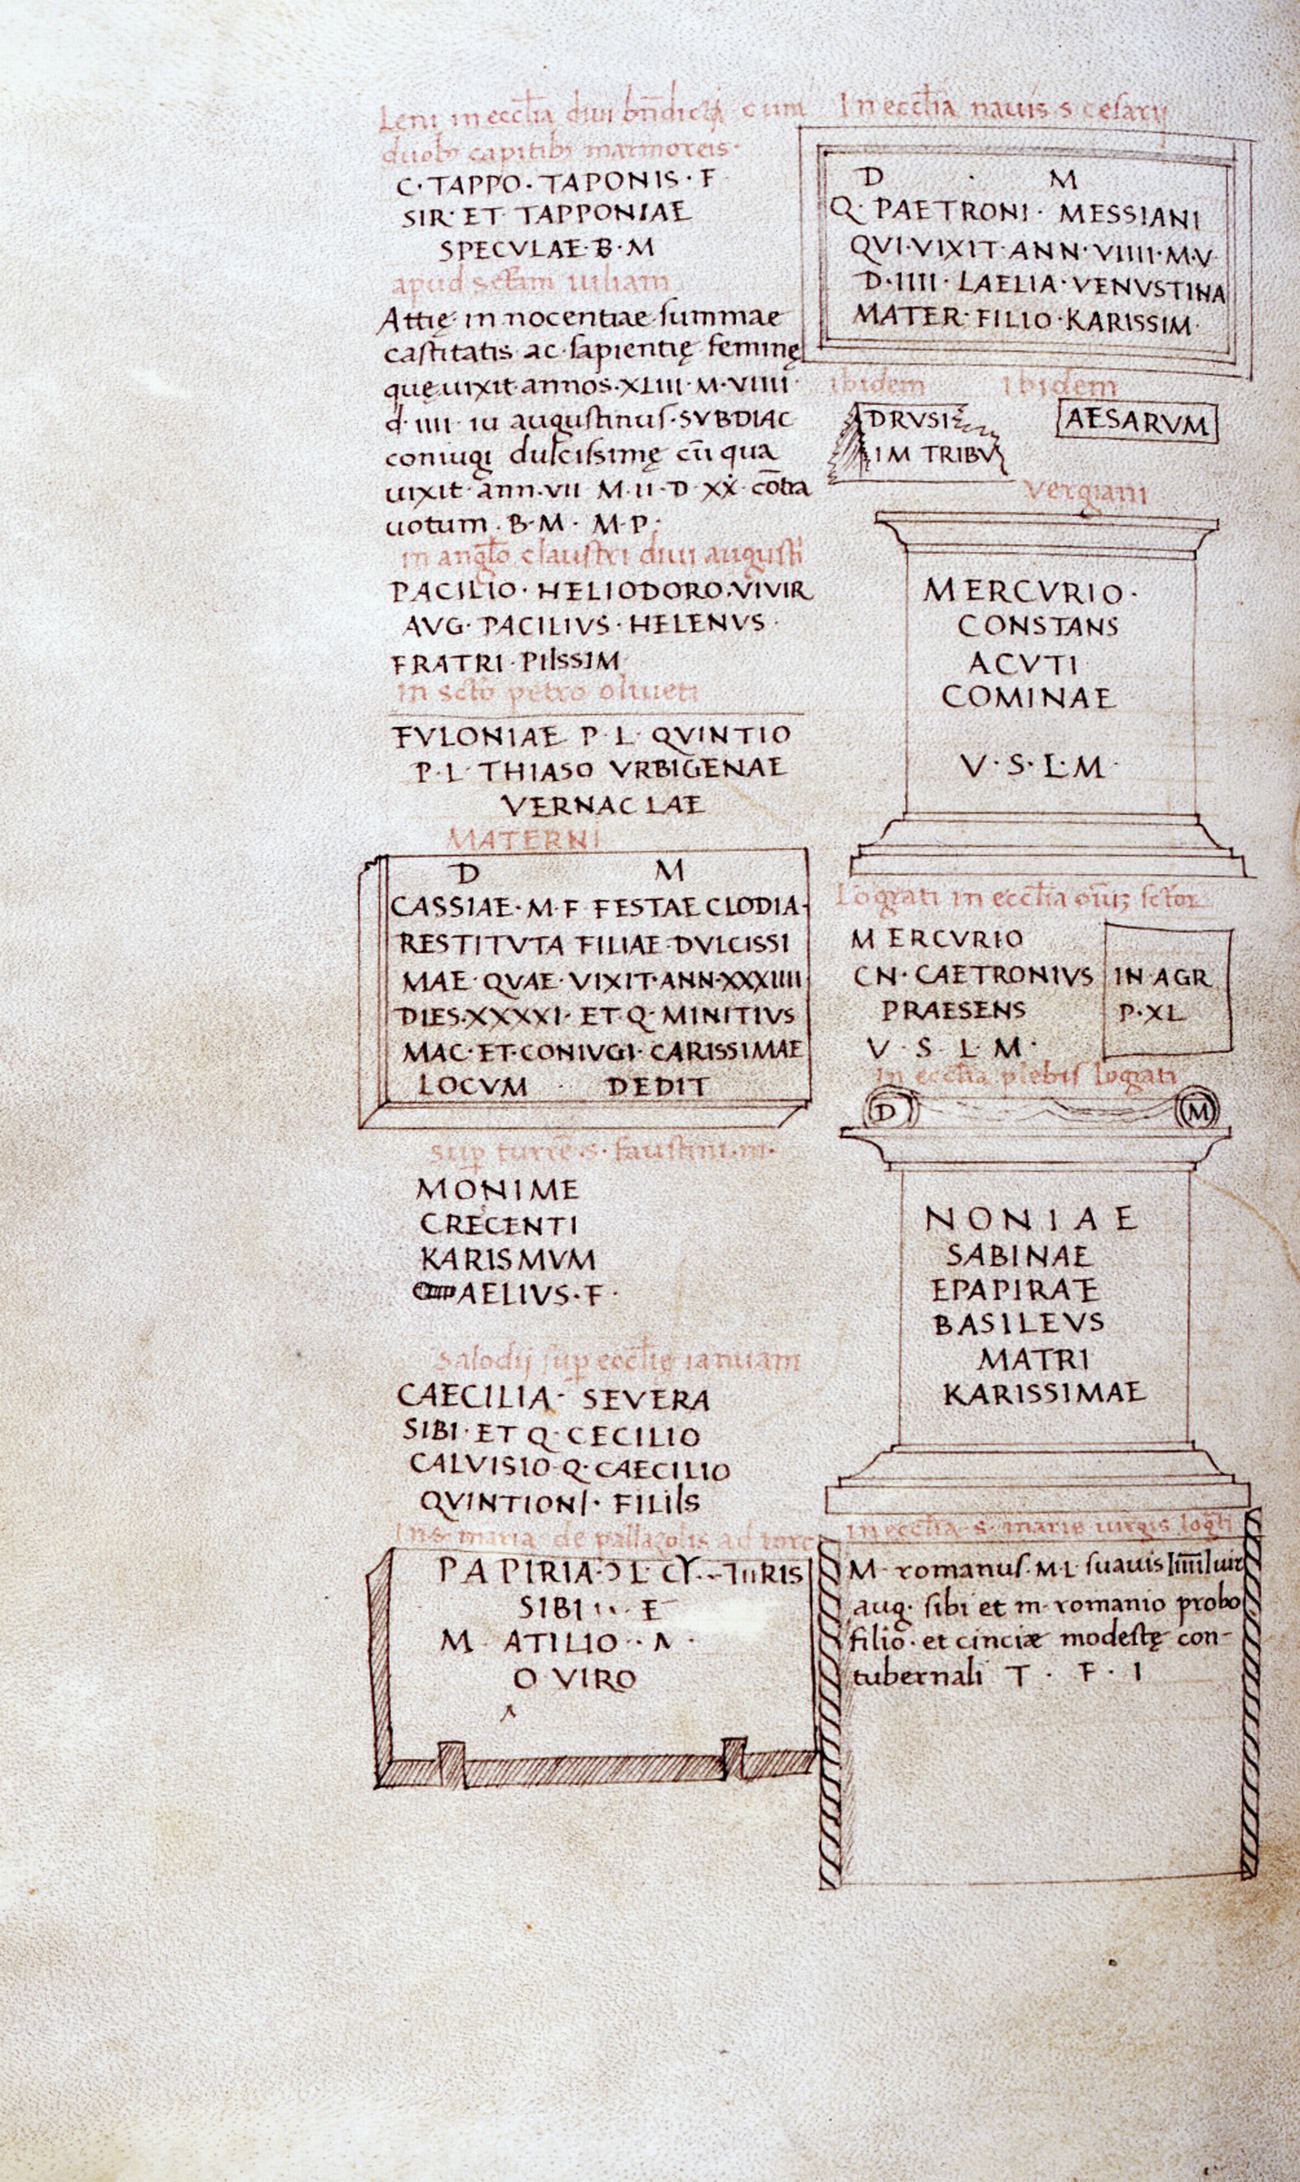 Leni in eccl̄ia diui bn̄dicti cum
duob; capitib; marmoreis·
C·TAPPO·TAPONIS·F
SIR·ET TAPPONIAE
SPECVLAE·B·M
apud sc̄tam iuliam
Attię in nocentiae summae
castitatis ac sapientię feminę
quę uixit annos·XLIII·M·VIIII·
d· IIII· iu augustinus·SVBDIAC
coniugi dulcissimę cū qua
uixit ann·VII M·II·D XX cōtra
uotum B·M· M·P·
in anglo claustri diui augusti
PACILIO·HELIODORO·VIVIR
AVG·PACILIVS·HELENVS·
FRATRI·PIISSIM
in scto petro oliueti
FVLONIAE P·L·QVINTIO
P·L THIASO VRBIGENAE
VERNAC LAE
MATERNI
D M
CASSIAE·M·F FESTAE CLODIA·
RESTITVTA FILIAE DVLCISSI
MAE QVAE VIXIT·ANN·XXXIIII
DIES·XXXXI· ET·Q·MINITIVS
MAC·ET·CONIVGI·CARISSIMAE
LOCVM DEDIT
sup turrē·s·faustini·m·
MONIME
CRECENTI
KARISMVM
AELIVS·F·
Salodij sup eccl̄ię ianuam
CAECILIA· SEVERA
SIBI·ET Q·CECILIO
CALVISIO·Q·CAECILIO
QVINTIONI·FILIIS
In s· maria de pallazolis ad torc
PAPIRIA·Ɔ L· RIS
SIBI E
M ATILIO
O VIRO
In eccl̄ia nauis s cesarij
D · M
Q·PAETRONI·MESSIANI
QVI·VIXIT·ANN·VIIII·M·V
D·IIII·LAELIA·VENVSTINA
MATER·FILIO·KARISSIM·
ibidem ibidem
DRVSI AESARVM
IM TRIBV
Vergiani
MERCVRIO·
CONSTANS
ACVTI
COMINAE
V·S·L·M·
Lograti in eccl̄ia oīu; sctor
MERCVRIO
CN·CAETRONIVS IN·AGR
PRAESENS P·XL
V·S·L·M·
in eccl̄ia plebis lograti
D M
NONIAE
SABINAE
EPAPIRAE
BASILEVS
MATRI
KARISSIMAE
In eccl̄ia s· marie uirgis loḡti
M· romanus·M·L suauis IIIIIIuir
aug· sibi et m· romanio probo
filio·et cinciæ modestę con-
tubernali T · F · I